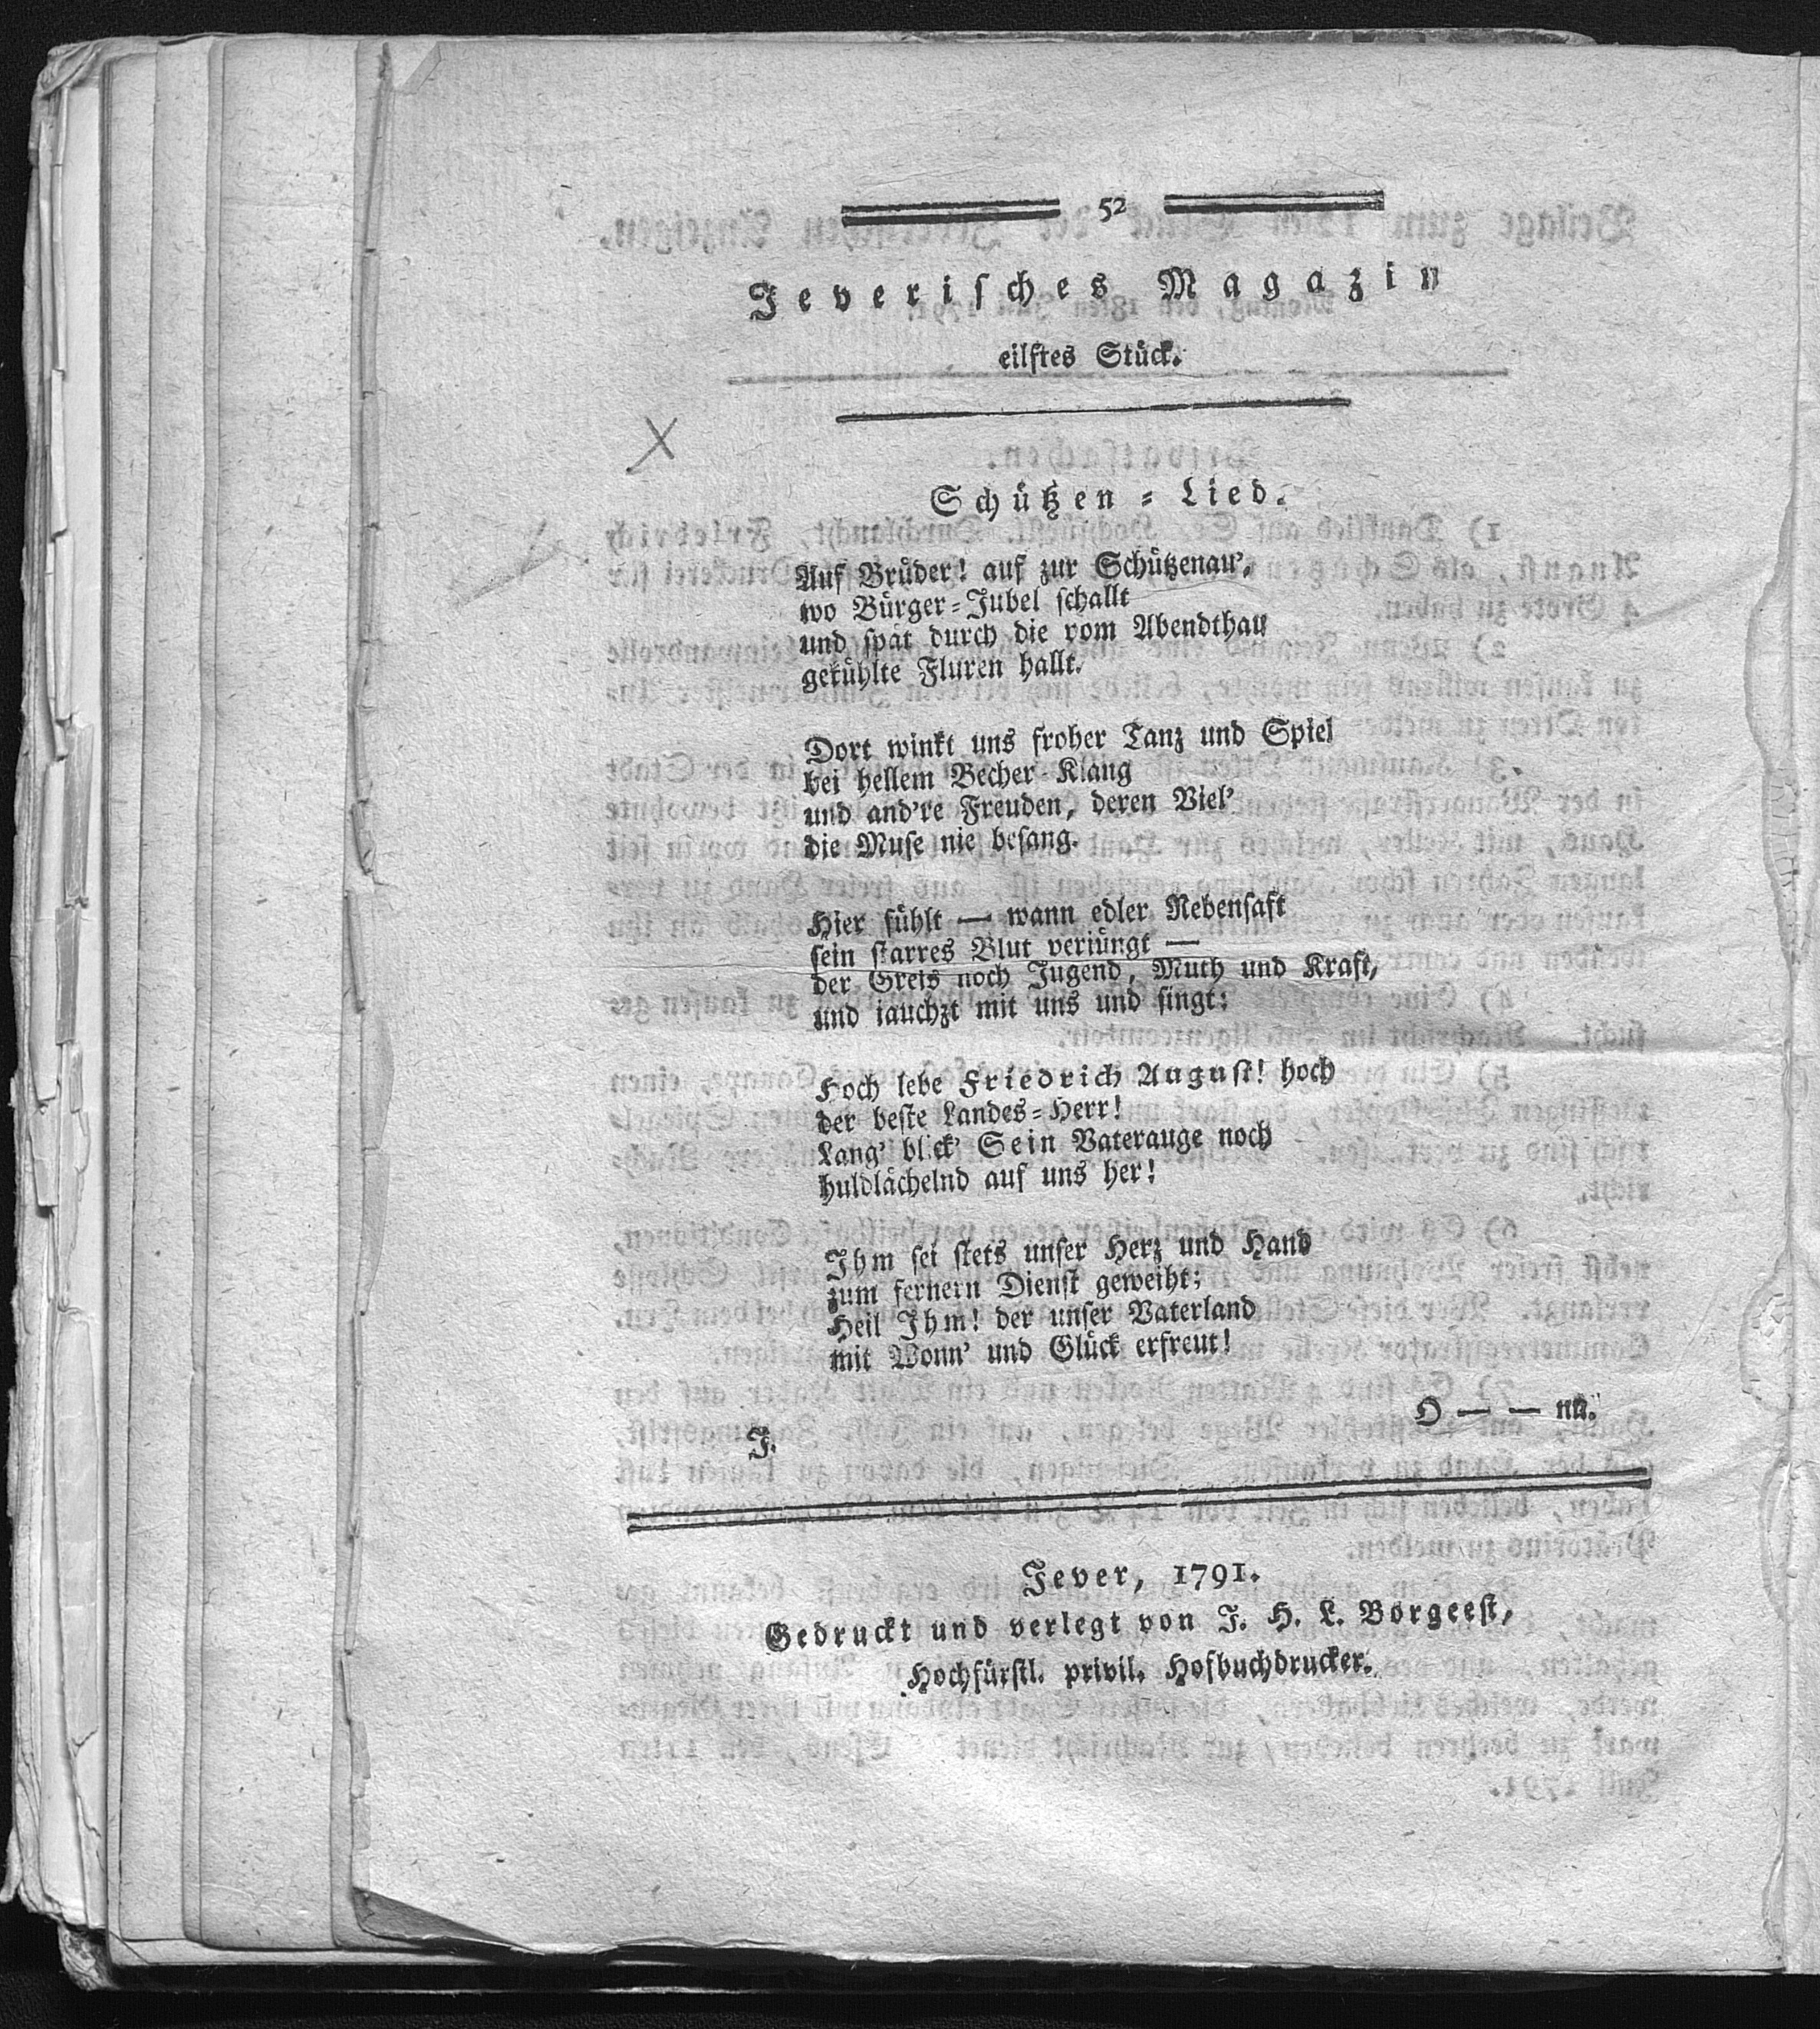 52
Jeverisches Magazin
eilftes Stück.
Schützen-Lied.
Auf Brüder! auf zur Schützenau',
wo Bürger-Jubel schallt
und spät durch die vom Abendthau
gekühlte Fluren hallt.
Dort winkt uns froher Tanz und Spiel
bei hellem Becher-Klang
und and're Freuden, deren Viel'
die Muse nie besang.
Hier fühlt — wann edler Rebensaft
sein starres Blut verjüngt —
der Greis noch Jugend, Muth und Kraft,
und jauchzt mit uns und singt:
Hoch lebe Friedrich August! hoch
der beste Landes-Herr!
Lang' blick' Sein Vaterauge noch
huldlächelnd auf uns her!
Ihm sei stets unser Herz und Hand
zum fernern Dienst geweiht;
Heil Ihm! der unser Vaterland
mit Wonn' und Glück erfreut!
J.
Jever, 1791.
Gedruckt und verlegt von J. H. L. Borgeest,
Hochfürstl. privil. Hofbuchdrucker.